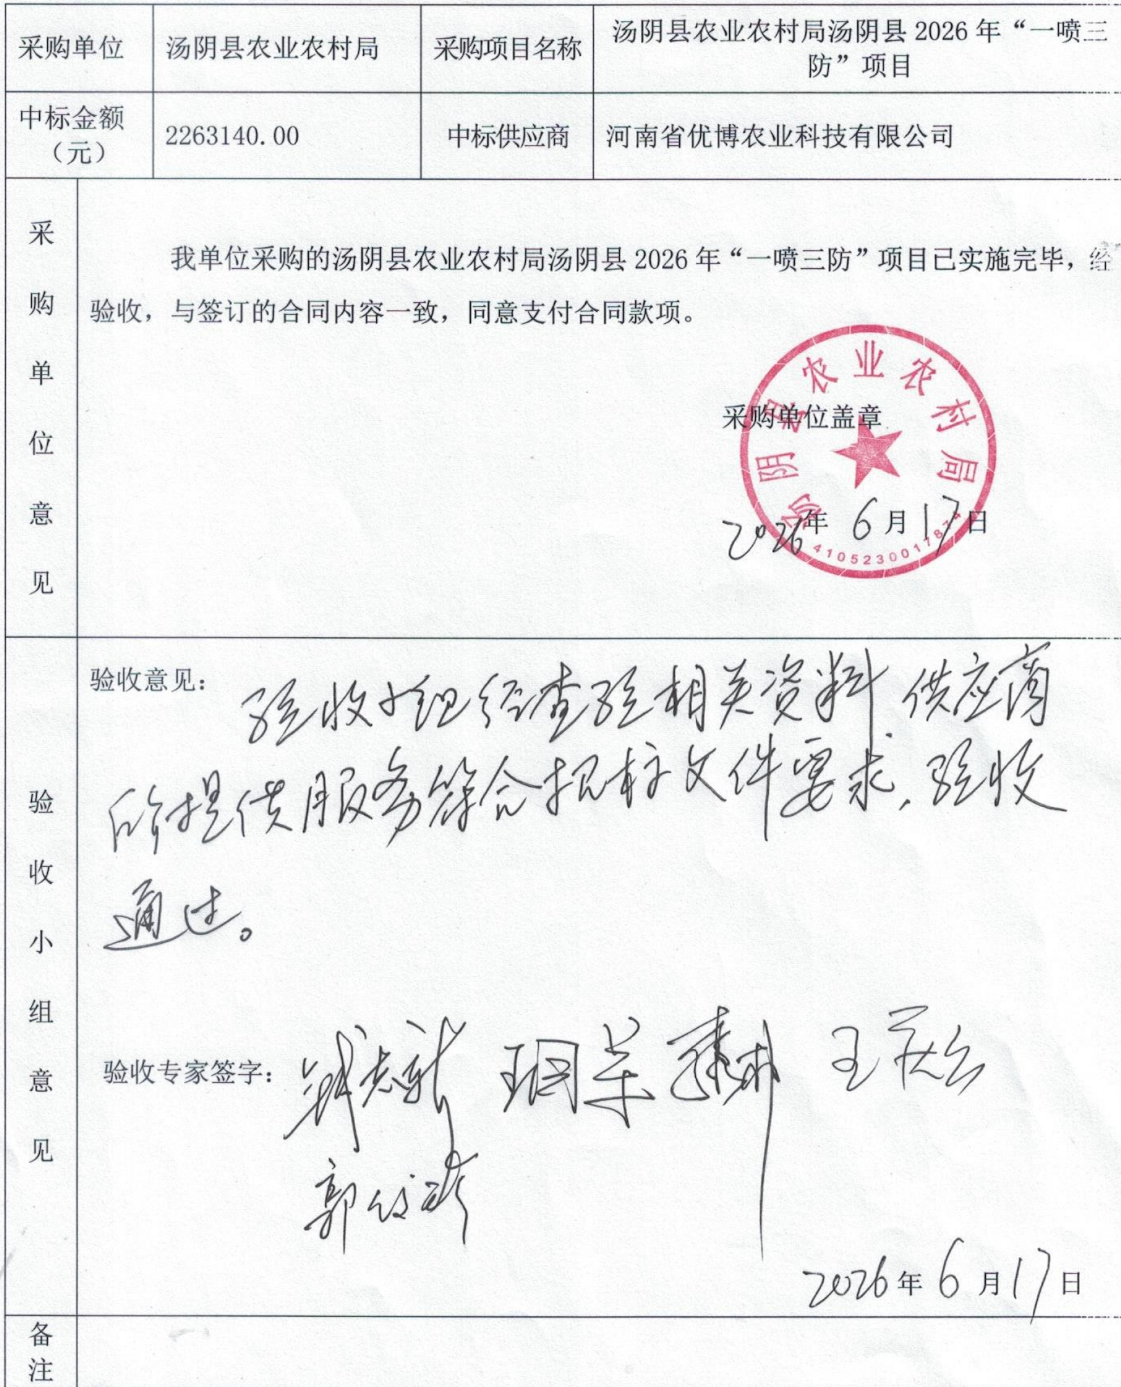 采购单位 汤阴县农业农村局 采购项目名称 汤阴县农业农村局汤阴县 2026 年“一喷三
防”项目
中标金额
（元） 2263140.00 中标供应商 河南省优博农业科技有限公司
采购单位意见
我单位采购的汤阴县农业农村局汤阴县 2026 年“一喷三防”项目已实施完毕，经
验收，与签订的合同内容一致，同意支付合同款项。
采购单位盖章
汤阴县农业农村局
2026年 6月17日
验收小组意见
验收意见：
验收小组经查验相关资料 供应商
所提供服务符合招标文件要求，验收
通过。
验收专家签字：
2026年6月17日
备注